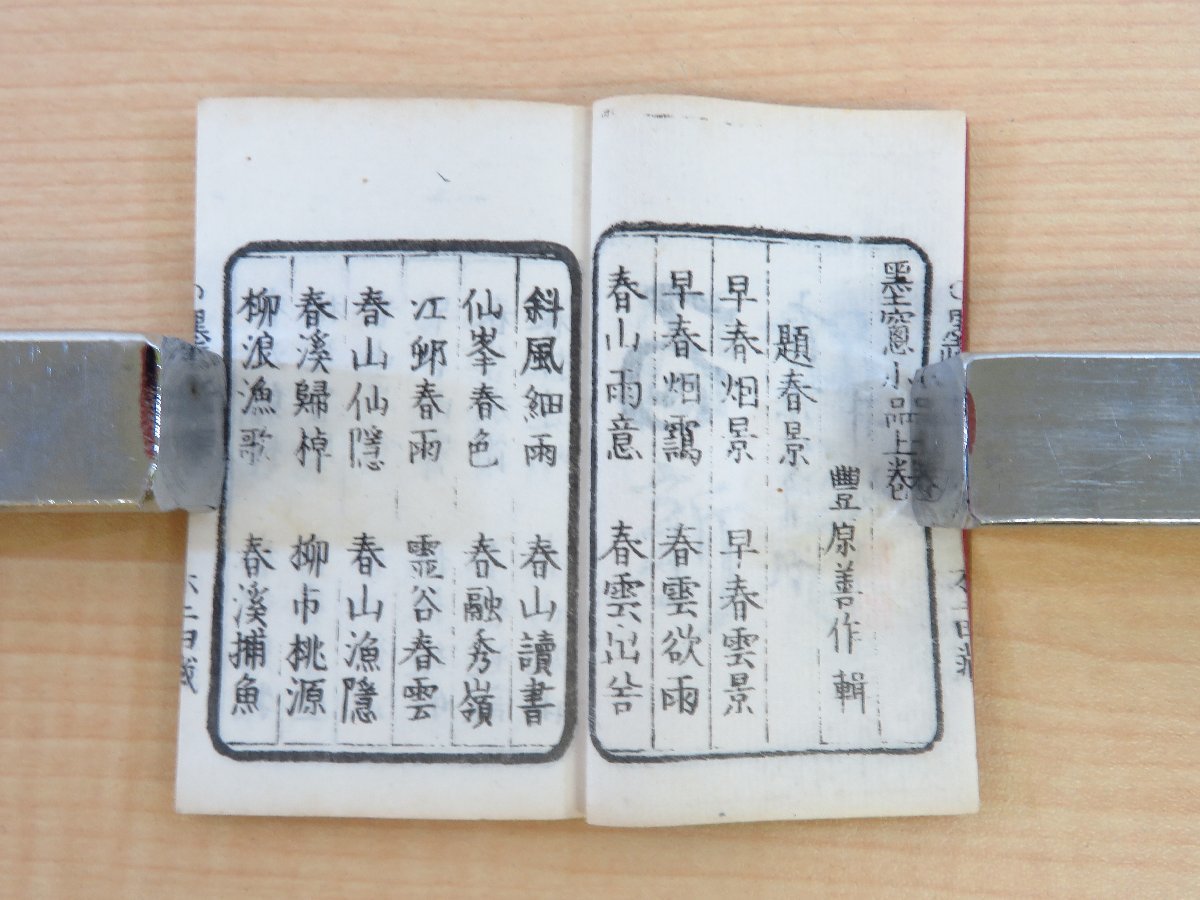 墨窻小品上卷
豐原善作輯
題春景
早春烟景 早春雲景
早春烟靄 春雲欲雨
春山雨意 春雲出谷
斜風細雨 春山讀書
仙峯春色 春融秀嶺
江邨春雨 靈谷春雲
春山仙隱 春山漁隱
春溪歸棹 柳市桃源
柳浪漁歌 春溪捕魚